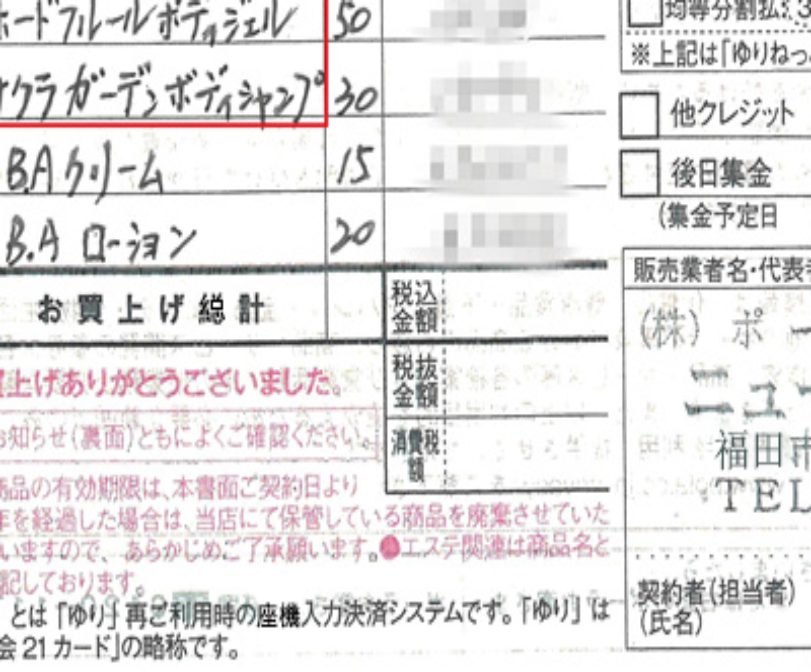 ードフルールボディジェル 50
クラガーデンボディシャンプ 30
B.Aクリーム 15
B.A ローション 20
お買上げ総計
税込金額
税抜金額
消費税額
買上げありがとうございました。
お知らせ(裏面)ともによくご確認ください。
商品の有効期限は、本書面ご契約日より
年を経過した場合は、当店にて保管している商品を廃棄させていた
いますので、あらかじめご了承願います。●エステ関連は商品名と
記しております。
とは「ゆり」再ご利用時の座機入力決済システムです。「ゆり」は
会21カード」の略称です。
均等分割払: 3
※上記は「ゆりねっ
他クレジット
後日集金
(集金予定日
販売業者名・代表者
(株) ポー
ニュー
福田市
TEL
契約者(担当者)
(氏名)